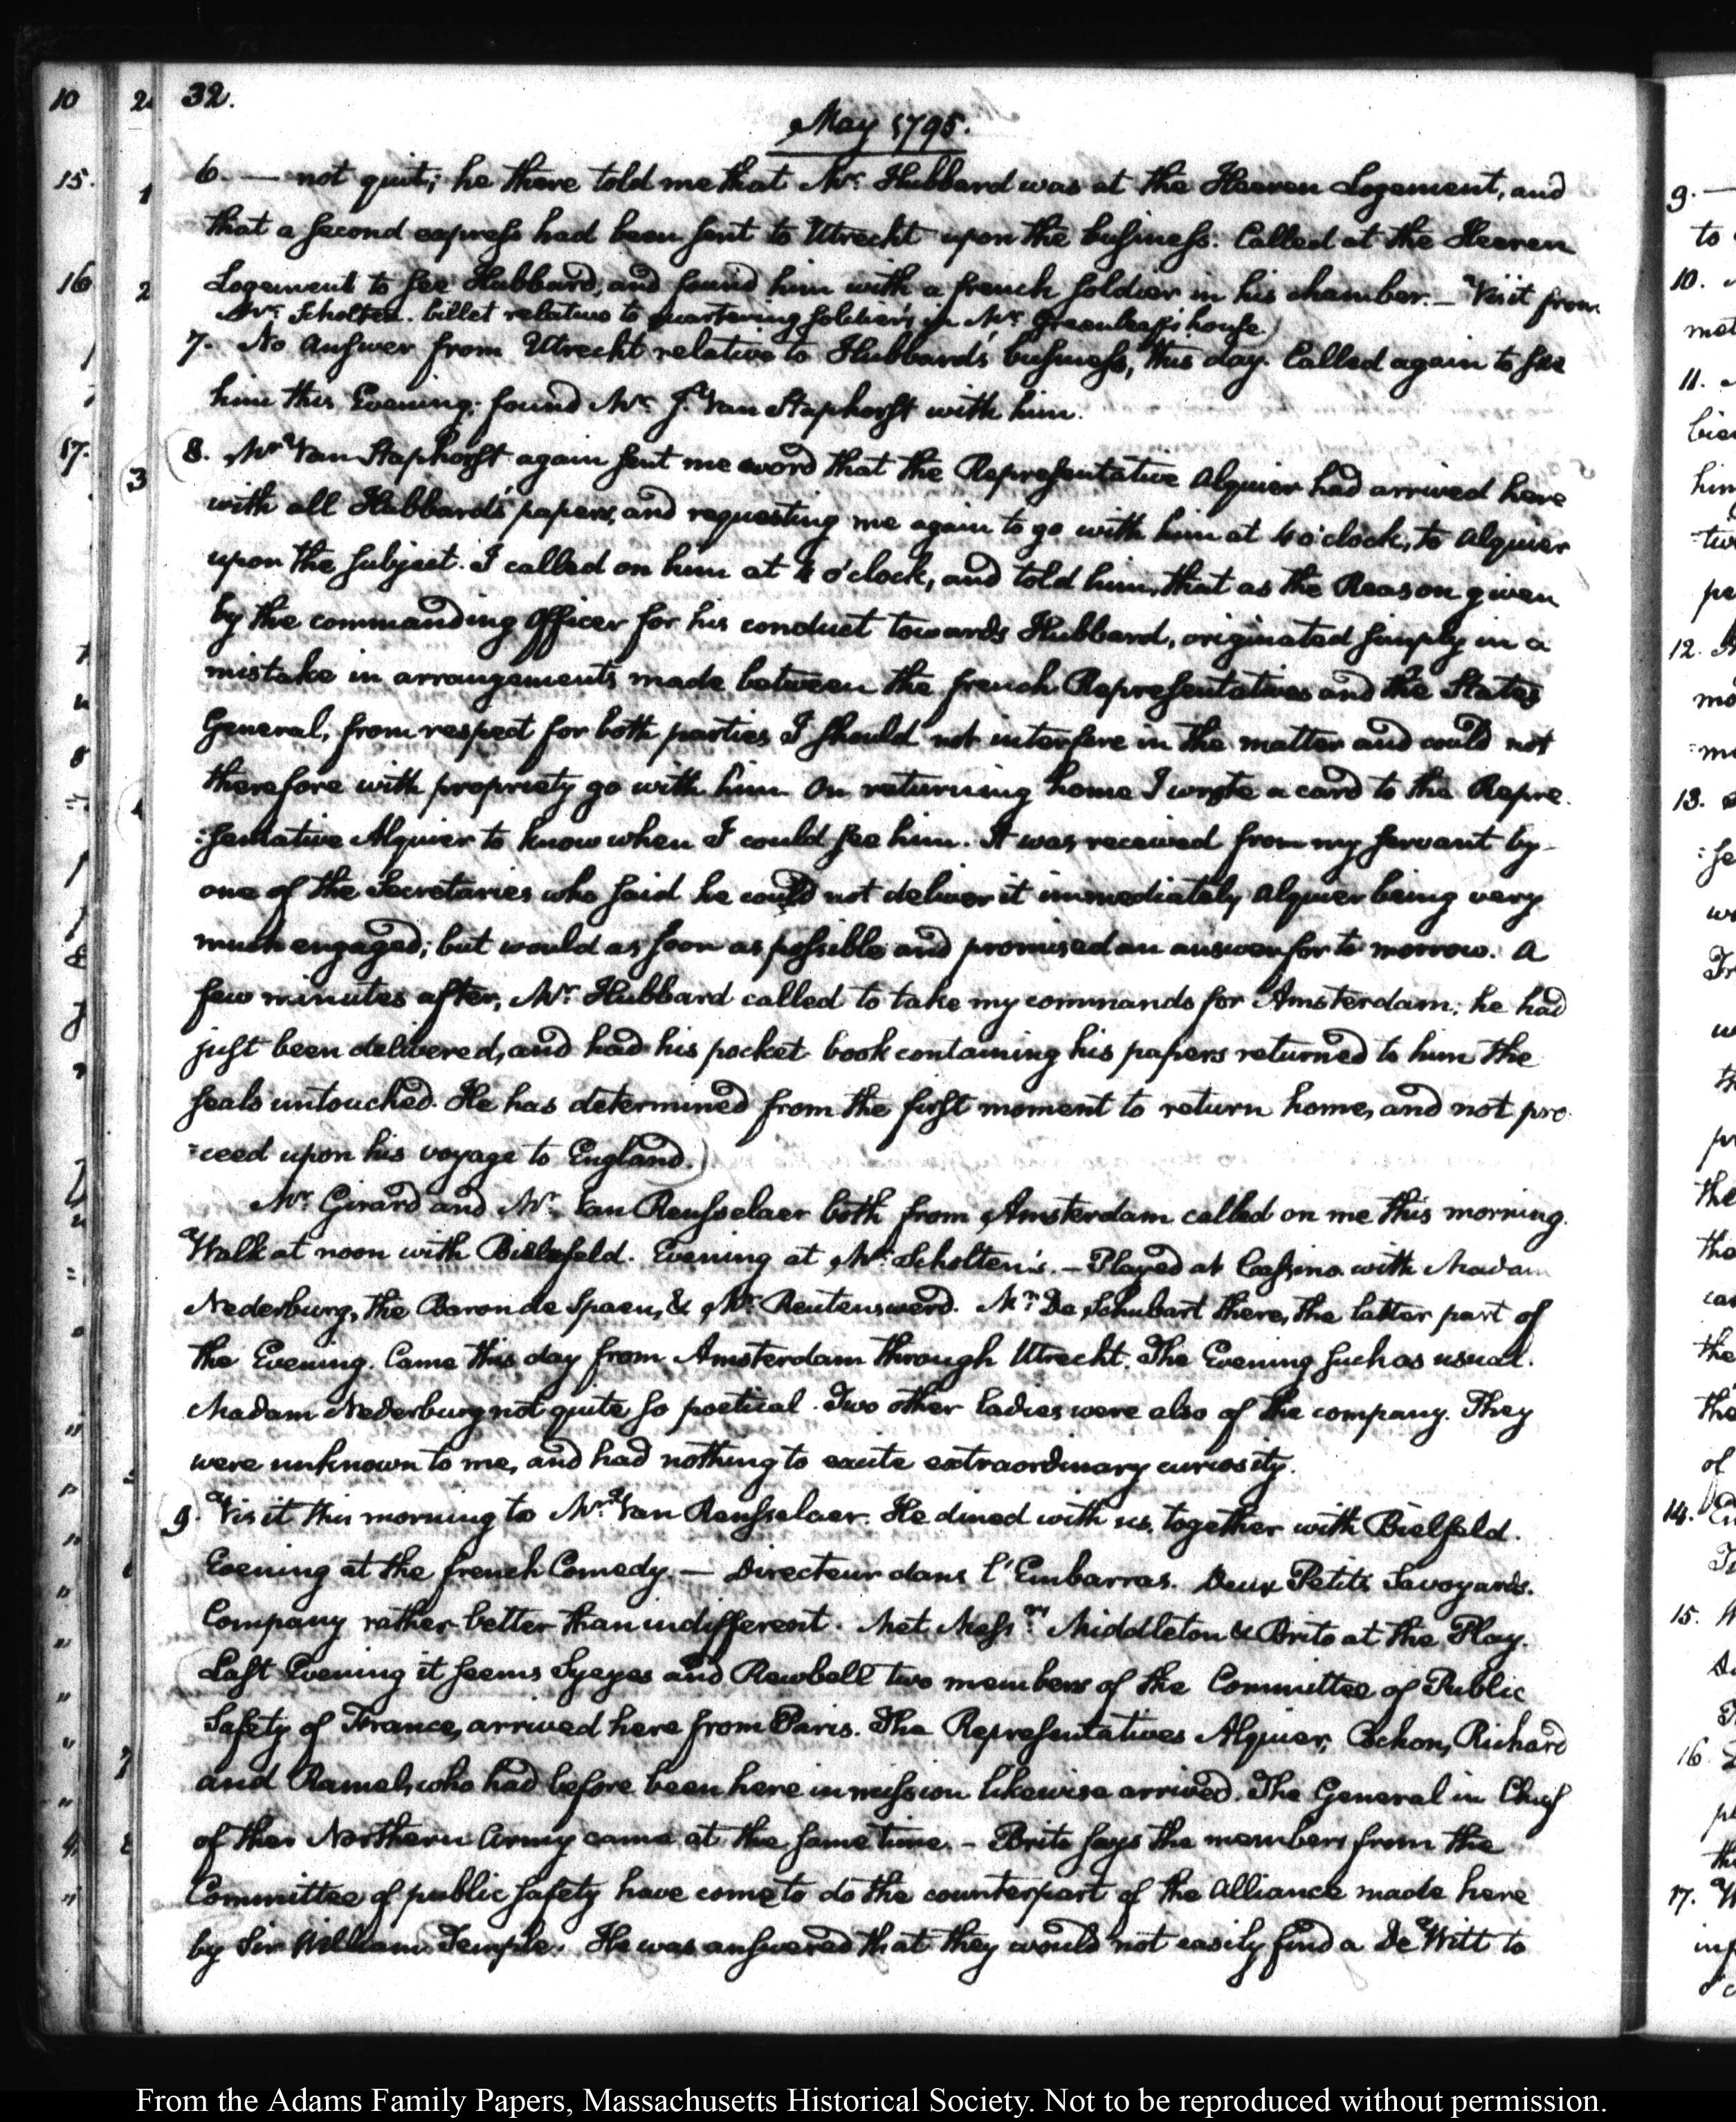 32.
May 1795.
6. — not quit; he there told me that Mr. Hubbard was at the Heeren Logement, and
that a second express had been sent to Utrecht upon the business. Called at the Heeren
Logement to see Hubbard, and found him with a french soldier in his chamber. — Visit from
Mr. Scholten. billet relative to quartering soldiers in Mr. Greenleaf's house.)
7. No answer from Utrecht relative to Hubbard's business, this day. Called again to see
him this Evening; found Mr. J. Van Staphorst with him.
(8. Mr Van Staphorst again sent me word that the Representative Alquier had arrived here
with all Hubbard's papers, and requesting me again to go with him at 4 o'clock, to Alquier
upon the subject. I called on him at 4 o'clock, and told him, that as the Reason given
by the commanding Officer for his conduct towards Hubbard, originated simply in a
mistake in arrangements made between the french Representatives and the States
General, from respect for both parties I should not interfere in the matter and could not
therefore with propriety go with him. On returning home I wrote a card to the Repre
:sentative Alquier to know when I could see him. It was received from my servant by
one of the Secretaries who said he could not deliver it immediately Alquier being very
much engaged; but would as soon as possible and promised an answer for to morrow. A
few minutes after, Mr. Hubbard called to take my commands for Amsterdam; he had
just been delivered, and had his pocket book containing his papers returned to him the
seals untouched. He has determined from the first moment to return home, and not pro
:ceed upon his voyage to England.)
Mr. Girard and Mr. Van Rensselaer both from Amsterdam called on me this morning.
Walk at noon with Bielefeld. Evening at Mr. Scholten's. — Played at Cassino with Madam
Nederburg, the Baron de Spaen, & Mr. Reutenswerd. Mr. De Schubart there, the latter part of
the Evening. Came this day from Amsterdam through Utrecht. The Evening such as usual.
Madam Nederburg not quite so poetical. Two other ladies were also of the company. They
were unknown to me, and had nothing to excite extraordinary curiosity.
9. Visit this morning to Mr. Van Rensselaer. He dined with us, together with Bielfeld.
Evening at the french Comedy. — Directeur dans l'Embarras. Deux Petits Savoyards.
Company rather better than indifferent. Met Messrs. Middleton & Brito at the Play.
(Last Evening it seems Syeyes and Rewbell two members of the Committee of Public
Safety of France, arrived here from Paris. The Representatives Alquier, Cochon, Richard
and Ramel, who had before been here in mission likewise arrived. The General in Chief
of their Northern Army came at the same time. — Brito says the members from the
Committee of public safety have come to do the counterpart of the Alliance made here
by Sir William Temple. He was answered that they would not easily find a De Witt to
From the Adams Family Papers, Massachusetts Historical Society. Not to be reproduced without permission.